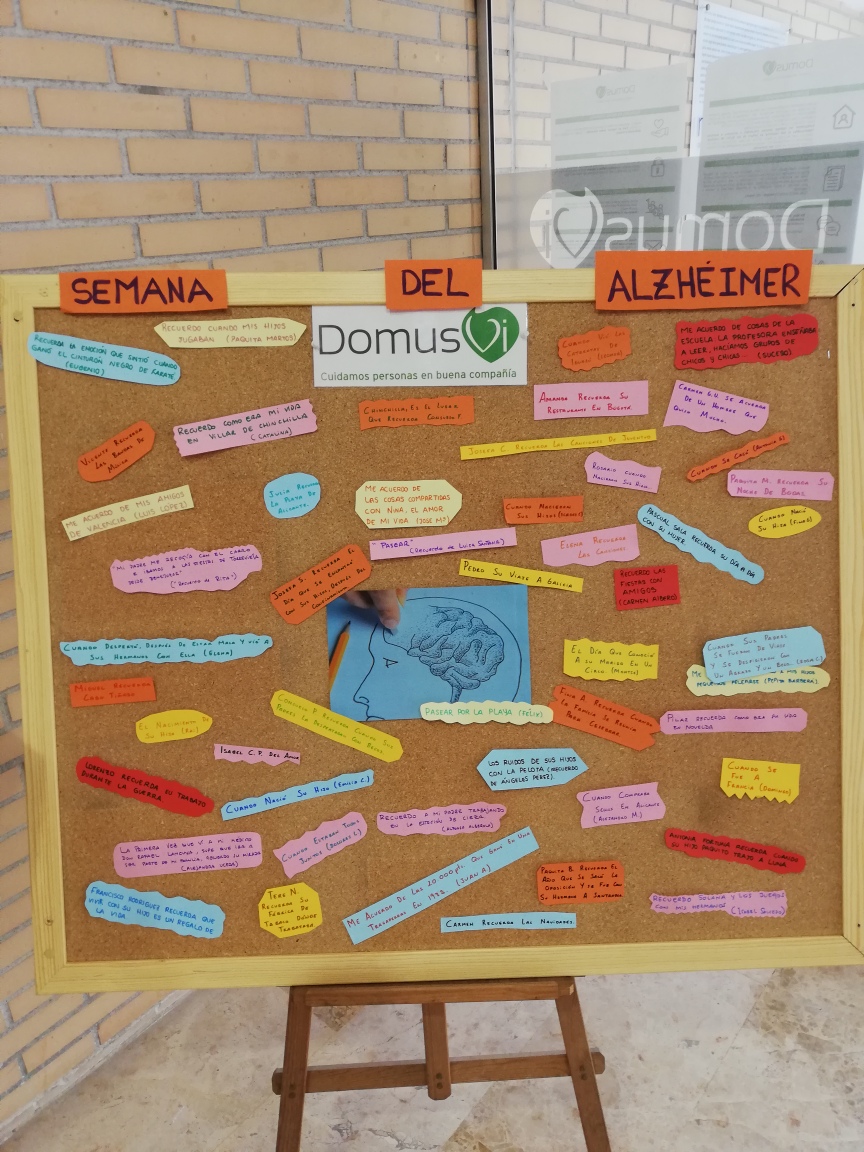 SEMANA DEL ALZHÉIMER
DomusVi
Cuidamos personas en buena compañía
RECUERDO CUANDO MIS HIJOS
JUGABAN (PAQUITA MARTOS)
RECUERDA LA EMOCIÓN QUE SINTIÓ CUANDO
GANÓ EL CINTURÓN NEGRO DE KARATE
(EUGENIO)
ME ACUERDO DE COSAS DE LA
ESCUELA LA PROFESORA ENSEÑABA
A LEER, HACÍAMOS GRUPOS DE
CHICOS Y CHICAS... (SUCESO)
VICENTE RECUERDA
LAS BANDAS DE
MÚSICA
RECUERDO COMO ERA MI VIDA
EN VILLAR DE CHINCHILLA
(CATALINA)
CHINCHILLA, ES EL LUGAR
QUE RECUERDA
AMANDA RECUERDA SU
RESTAURANTE EN BOGOTÁ.
CARMEN G.H. SE ACUERDA
DE UN HOMBRE QUE
QUISO MUCHO.
JOSEFA C. RECUERDA LAS CANCIONES DE JUVENTUD
CUANDO SE CASÓ
ROSARIO CUANDO
NACIERON SUS HIJOS.
PAQUITA M. RECUERDA SU
NOCHE DE BODAS.
ME ACUERDO DE MIS AMIGOS
DE VALENCIA (LUIS LÓPEZ)
JULIA RECUERDA
LA PLAYA DE
ALICANTE.
ME ACUERDO DE
LAS COSAS COMPARTIDAS
CON NINA, EL AMOR
DE MI VIDA (JOSE Mª)
CUANDO NACIERON
SUS HIJOS
CUANDO NACIÓ
SU HIJA
PASCUAL SALA RECUERDA SU DÍA A DÍA
CON SU MUJER
"PASEAR"
ELENA RECUERDA
LAS CANCIONES
"MI PADRE ME RECOGÍA CON EL CARRO
E ÍBAMOS A LAS FIESTAS DE TORREVIEJA
DESDE BENEJÚZAR"
("RECUERDO DE RITA")
JOSEFA S. RECUERDA EL
DÍA QUE SE ENCONTRÓ
CON SUS HIJOS, DESPUÉS DEL
CONFINAMIENTO
PEDRO SU VIAJE A GALICIA
RECUERDO LAS
FIESTAS CON
AMIGOS
(CARMEN ALBERO)
CUANDO DESPERTÓ, DESPUÉS DE ESTAR MALA Y VIÓ A
SUS HERMANOS CON ELLA (ELENA)
EL DÍA QUE CONOCIÓ
A SU MARIDO EN UN
CIRCO (MONTSE)
CUANDO SUS PADRES
SE FUERON DE VIAJE
Y SE DESPIDIERON CON
UN ABRAZO Y UN BESO.
MIGUEL RECUERDA
CADA TIENDA
EL NACIMIENTO DE
SU HIJO
CONSUELO P. RECUERDA CUANDO SUS
PADRES LA DESPERTABAN CON BESOS.
PASEAR POR LA PLAYA (FÉLIX)
FINA A RECUERDA CUANDO
LA FAMILIA SE REUNÍA
PARA CELEBRAR.
PILAR RECUERDA COMO ERA SU VIDA
EN NOVELDA
ISABEL C.P. DEL AMOR
LORENZO RECUERDA SU TRABAJO
DURANTE LA GUERRA
CUANDO NACIÓ SU HIJO (EMILIA C.)
LOS RUIDOS DE SUS HIJOS
CON LA PELOTA (RECUERDO
DE ÁNGELES PÉREZ).
CUANDO SE
FUE A
FRANCIA (DOMINGA)
CUANDO COMPRABA
SENIA EN ALICANTE
RECUERDO A MI PADRE TRABAJANDO
EN LA ESTACIÓN DE CIEZA.
CUANDO ESTABAN TODOS
JUNTOS (DOLORES L.)
LA PRIMERA VEZ QUE VÍ A MI MÉDICO
ANTONIA TORTOSA RECUERDA CUANDO
SU HIJO PAQUITO TRAJO A LUNA.
FRANCISCO RODRÍGUEZ RECUERDA QUE
VIVIR CON SU HIJO ES UN REGALO DE
LA VIDA
TERE N.
RECUERDA SU
FÁBRICA DE
TABACO DONDE
TRABAJABA
ME ACUERDO DE LAS 20.000 pts. QUE GANÓ EN UNA
TRAGAPERRAS EN 1972. (JUAN A)
PAQUITA B. RECUERDA EL
AÑO QUE SE SACÓ LA
OPOSICIÓN Y SE FUE CON
SU HERMANA A SANTANDER
CARMEN RECUERDA LAS NAVIDADES.
RECUERDO SOLANA Y LOS JUEGOS
CON MIS HERMANOS